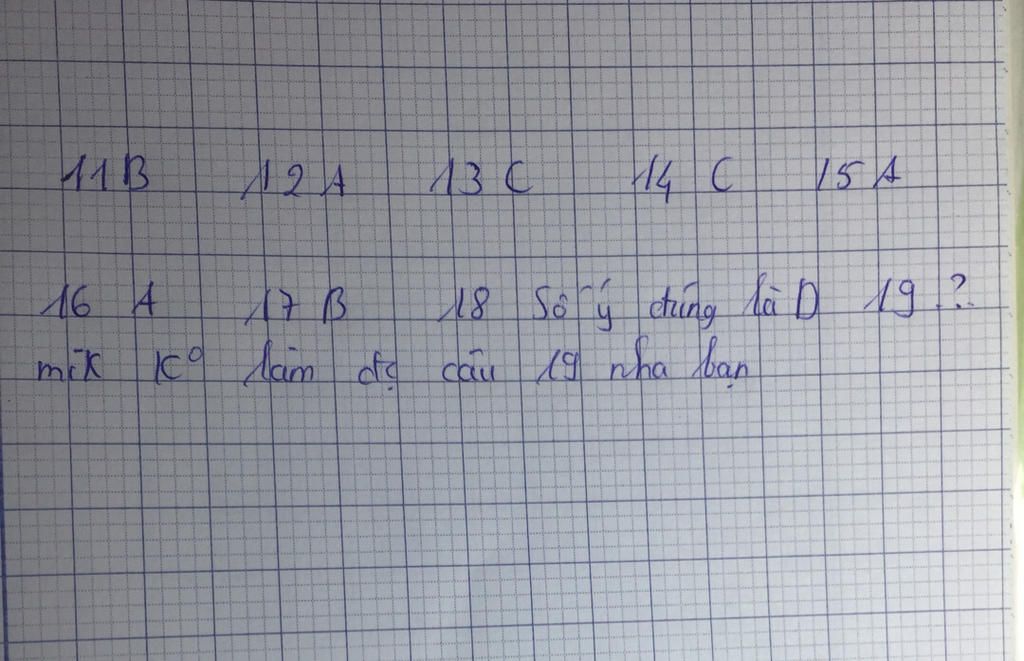 11 B 12 A 13 C 14 C 15 A
16 A 17 B 18 Số ý đúng là D 19 ?
mik k° làm đc câu 19 nha bạn